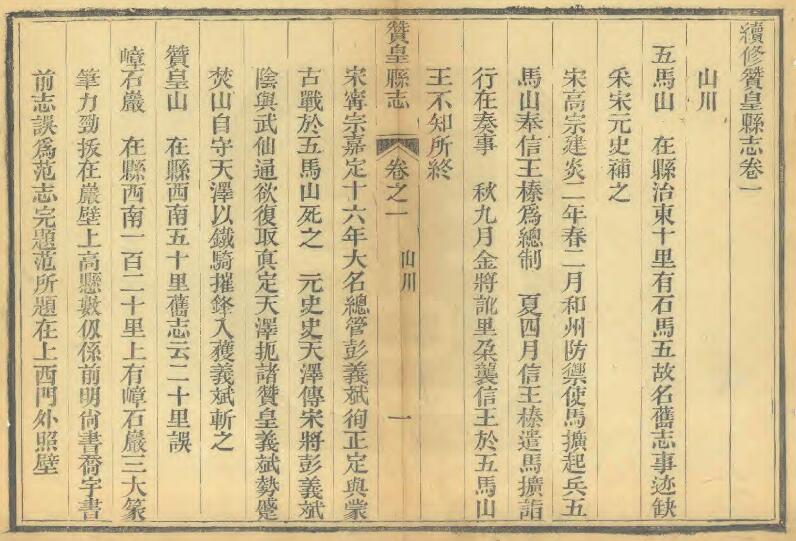 續修贊皇縣志卷一
山川
五馬山　在縣治東十里有石馬五故名舊志事迹缺
采宋元史補之
宋高宗建炎二年春二月和州防禦使馬擴起兵五
馬山奉信王榛爲總制　夏四月信王榛遣馬擴詣
行在奏事　秋九月金將訛里朶襲信王於五馬山
王不知所終
贊皇縣志　卷之一　山川　一
宋甯宗嘉定十六年大名總管彭義斌徇正定與蒙
古戰於五馬山死之　元史史天澤傳宋將彭義斌
陰與武仙通欲復取真定天澤扼諸贊皇義斌勢蹙
焚山自守天澤以鐵騎摧鋒入獲義斌斬之
贊皇山　在縣西南五十里舊志云二十里誤
嶂石巖　在縣西南一百二十里上有嶂石巖三大篆
筆力勁扳在巖壁上高懸數仭係前明尙書喬宇書
前志誤爲范志完題范所題在上西門外照壁